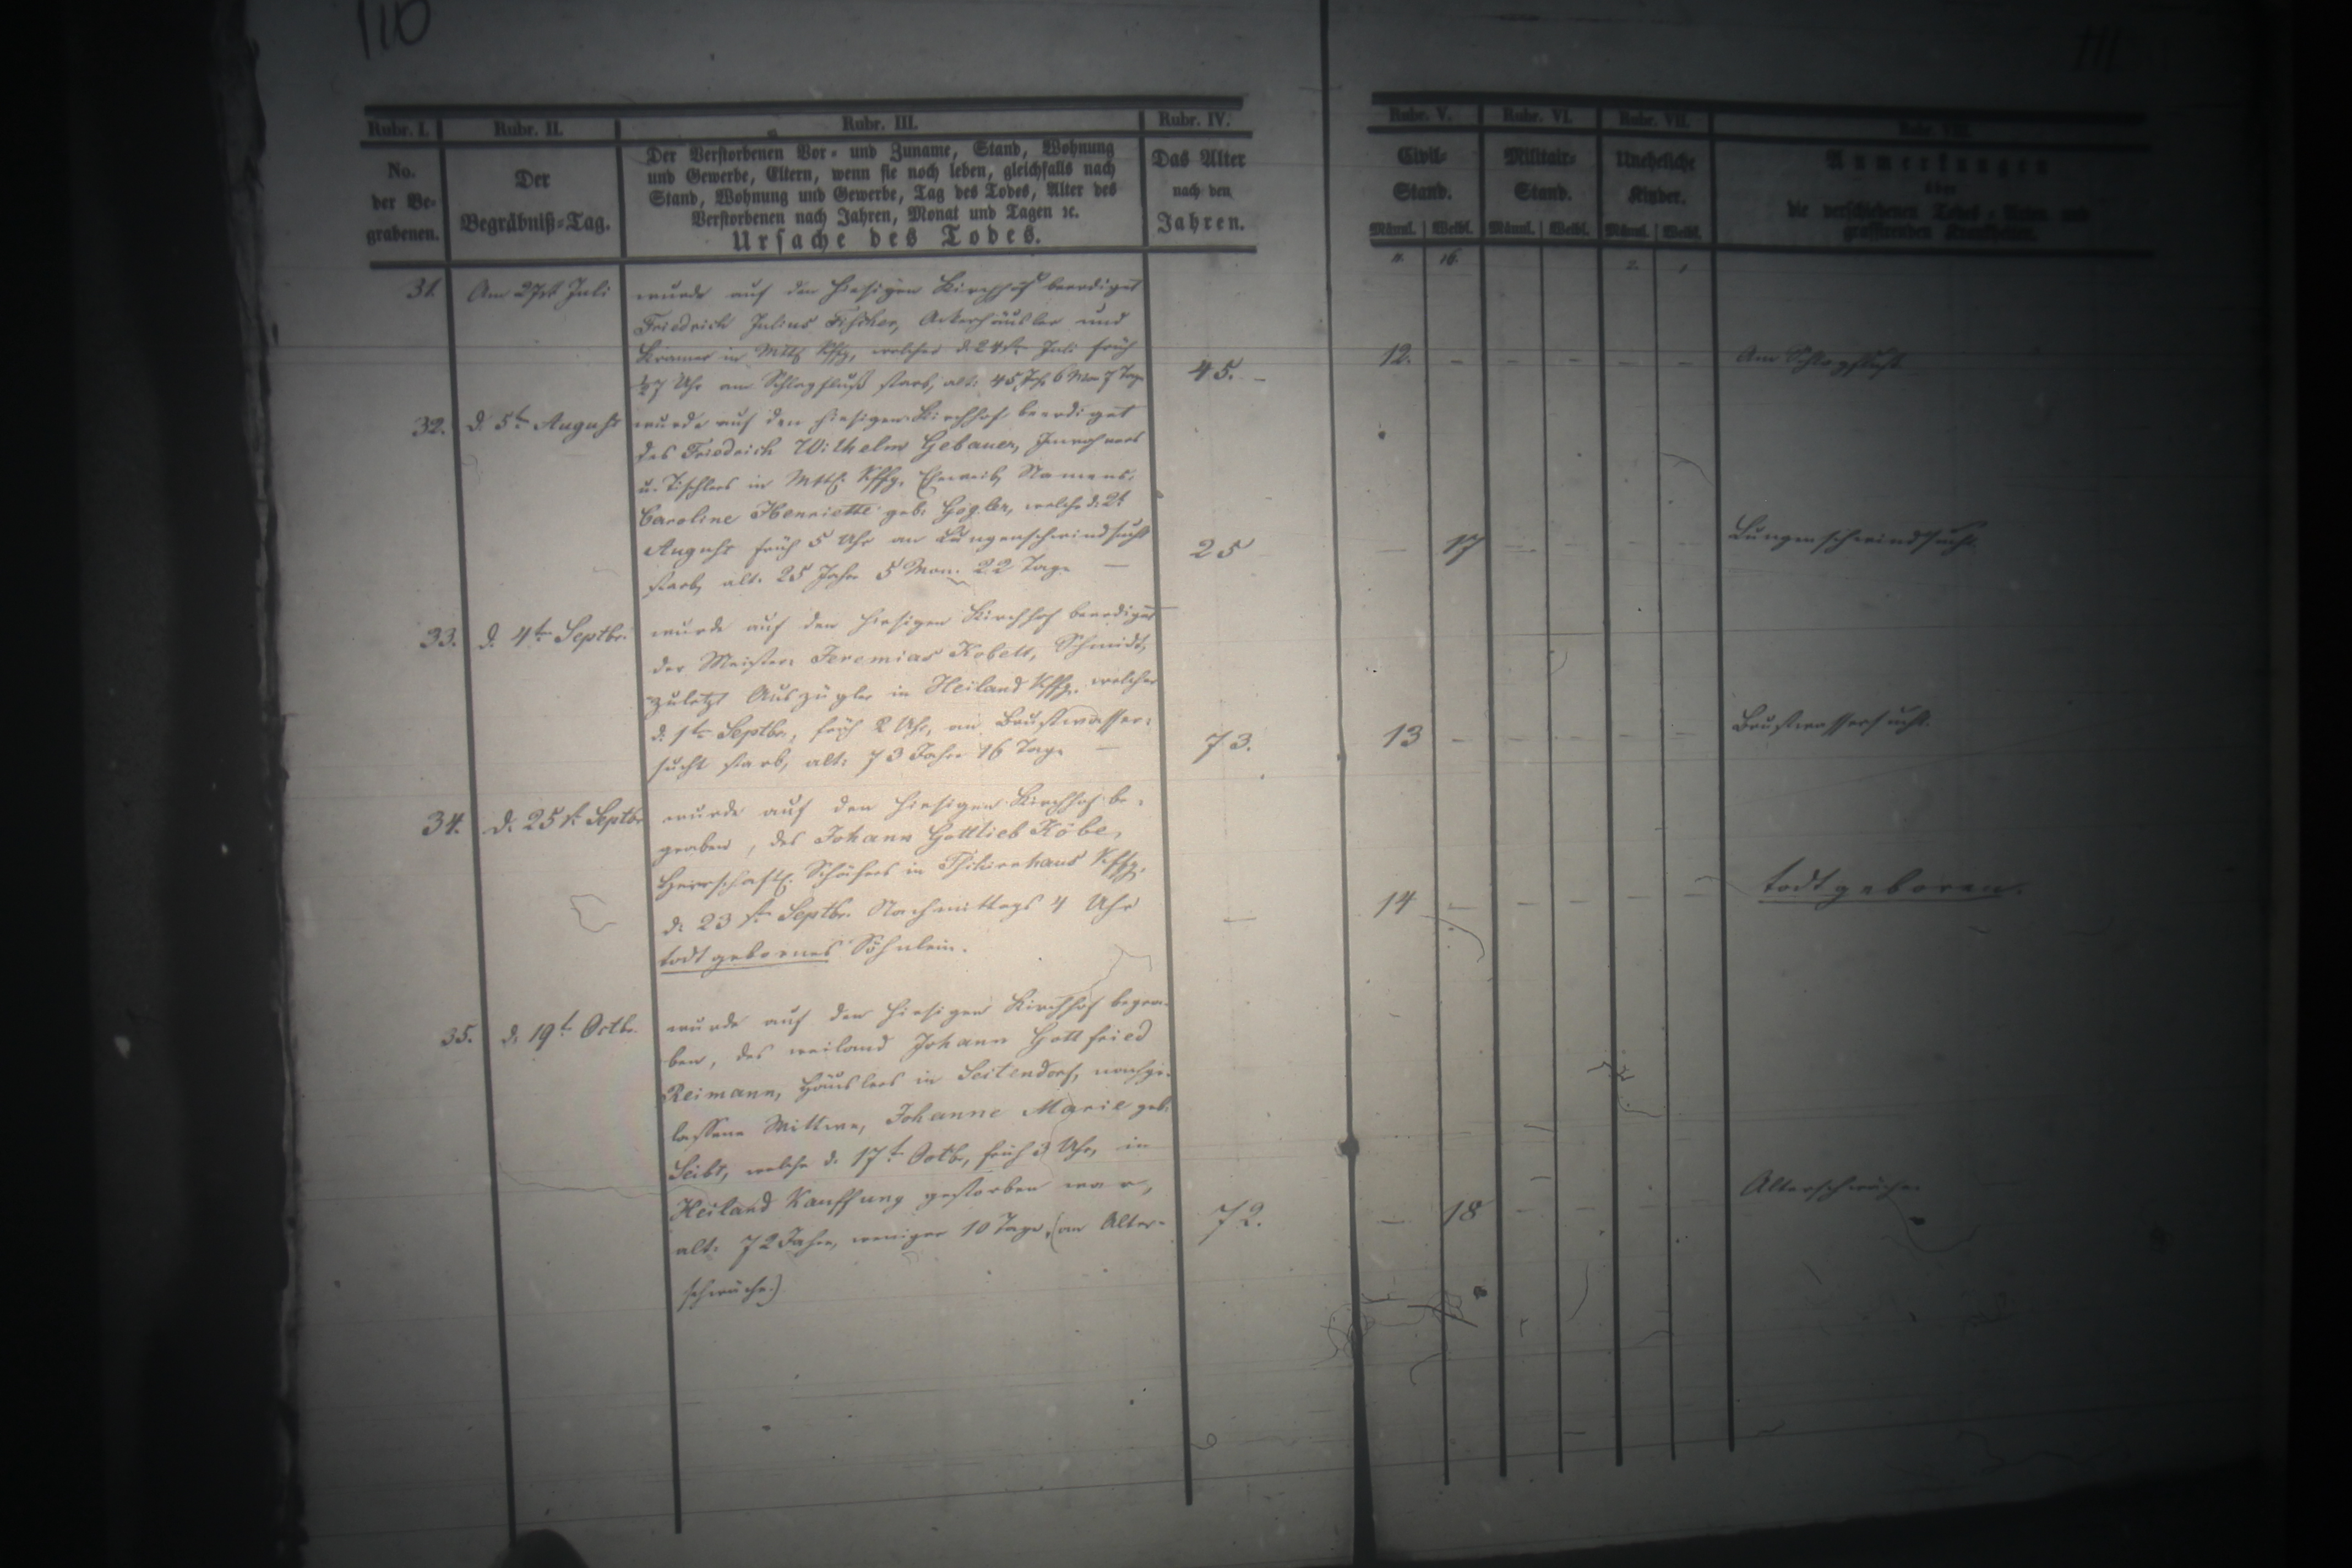 110
111
Rubr. I.
Rubr. II.
Rubr. III.
Rubr. IV.
Rubr. V.
Rubr. VI.
Rubr. VII.
Rubr. VIII.
No.
der Be-
grabenen.
Der
Begräbniß-Tag.
Der Verstorbenen Vor- und Zuname, Stand, Wohnung
und Gewerbe, Eltern, wenn sie noch leben, gleichfalls nach
Stand, Wohnung und Gewerbe, Tag des Todes, Alter des
Verstorbenen nach Jahren, Monat und Tagen ꝛc.
Ursache des Todes.
Das Alter
nach den
Jahren.
Civil-
Stand.
Militair-
Stand.
Uneheliche
Kinder.
Anmerkungen
über
die verschiedenen Todes-Arten und
grassirenden Krankheiten.
Männl. Weibl. Männl. Weibl. Männl. Weibl.
11. 16. 2. 1
31. Am 27st Juli wurde auf den hiesigen Kirchhof beerdiget
Friedrich Julius Fischer, Ackerhäusler und
Kramer in Mttl. Kffg., welcher d. 24st Juli früh
½7 Uhr am Schlagfluß starb, alt: 45 Jah. 6 Mon 7 Tage
45. – 12. – – – – – Am Schlagfluß
32. d. 5t August wurde auf den hiesigen Kirchhof beerdiget
des Friedrich Wilhelm Gebauer, Inwohners
u. Tischlers in Mttl. Kffg. Eheweib, Namens,
Caroline Henriette geb. welche d. 2t
August früh 5 Uhr an Lungenschwindsucht
starb, alt. 25 Jahr 5 Mon. 22 Tage –
25 – 17 – – – – Lungenschwindsucht.
33. d. 4t Septbr. wurde auf den hiesigen Kirchhof beerdiget
der Meister Jeremias Kobelt, Schmidt,
zuletzt Auszügler in Heiland Kffg. welcher
d. 1t Septbr., früh 2 Uhr, an Brustwasser-
sucht starb, alt: 73 Jahr 16 Tage –
73. 13 – – – – – Brustwassersucht.
34. d. 25st Septbr wurde auf den hiesigen Kirchhof be-
graben, des Johann Gottlieb Köbe,
herrschaftl. Schäfers in Kffg.
d. 23st Septbr. Nachmittags 4 Uhr
todtgebornes Söhnlein.
– 14 – – – – – todtgeboren.
35. d. 19t Octbr. wurde auf den hiesigen Kirchhof begra-
ben, des weiland Johann Gottfried
Reimann, Häuslers in Seitendorf, nachge-
lassene Wittwe, Johanne Marie geb.
Seibt, welche d. 17t Octbr, früh 3 Uhr, in
Heiland Kauffung gestorben war,
alt: 72 Jahre, weniger 10 Tage, (an Alter-
schwäche.)
72. – 18 – – – – Alterschwäche.